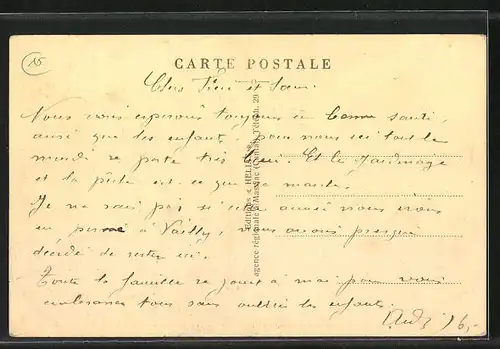 15
CARTE POSTALE
Cher Frère et Sœur.
Nous vous espérons toujours en bonne santé,
ainsi que les enfants, pour nous ici tout le
monde se porte très bien. Et le jardinage
et la pêche est-ce que ça marche.
Je ne sais pas si cette année nous irons
en perme à Vailly, nous avons presque
décidé de rester ici.
Toute la famille se joint à moi pour vous
embrasser tous sans oublier les enfants.
Editions « HELIO »
agence régionale à Massiac (Cantal) Téléph. 20